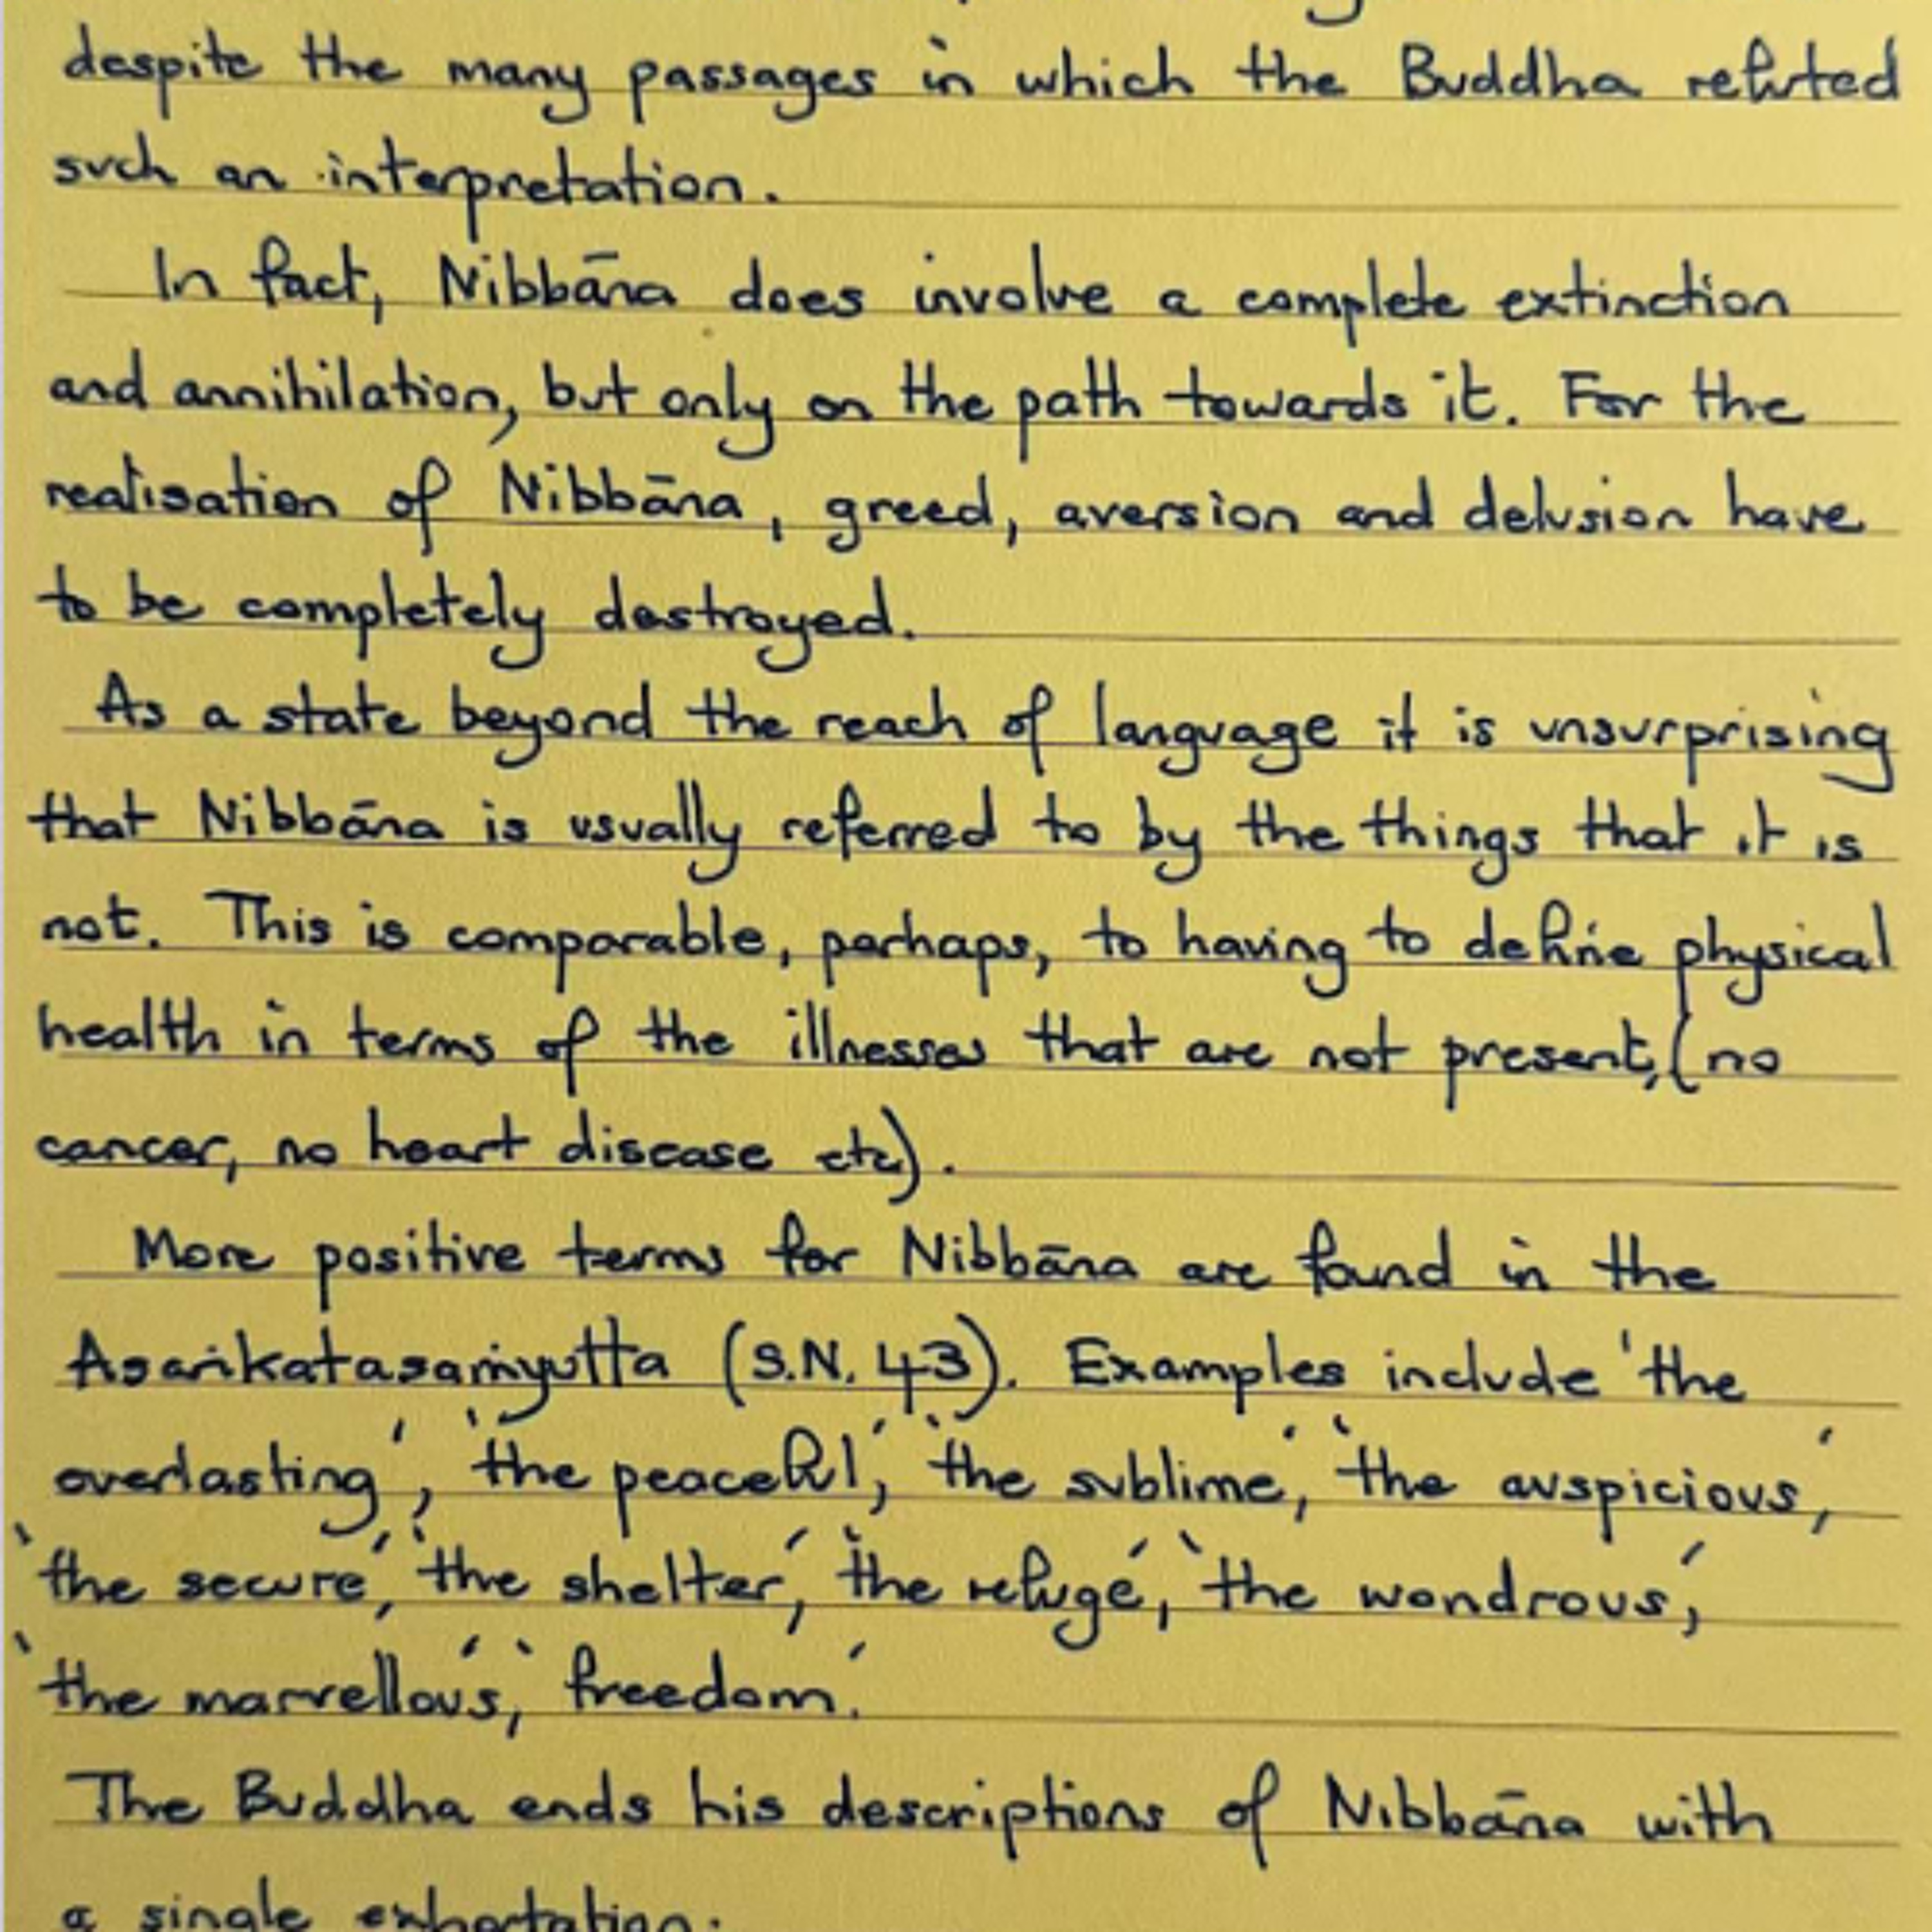 despite the many passages in which the Buddha refuted
such an interpretation.
In fact, Nibbāna does involve a complete extinction
and annihilation, but only on the path towards it. For the
realisation of Nibbāna, greed, aversion and delusion have
to be completely destroyed.
As a state beyond the reach of language it is unsurprising
that Nibbāna is usually referred to by the things that it is
not. This is comparable, perhaps, to having to define physical
health in terms of the illnesses that are not present, (no
cancer, no heart disease etc).
More positive terms for Nibbāna are found in the
Asaṅkatasaṁyutta (S.N. 43). Examples include 'the
overlasting', 'the peaceful', 'the sublime', 'the auspicious,'
'the secure,' 'the shelter,' 'the refuge', 'the wondrous,'
'the marvellous,' 'freedom.'
The Buddha ends his descriptions of Nibbāna with
a single exhortation: